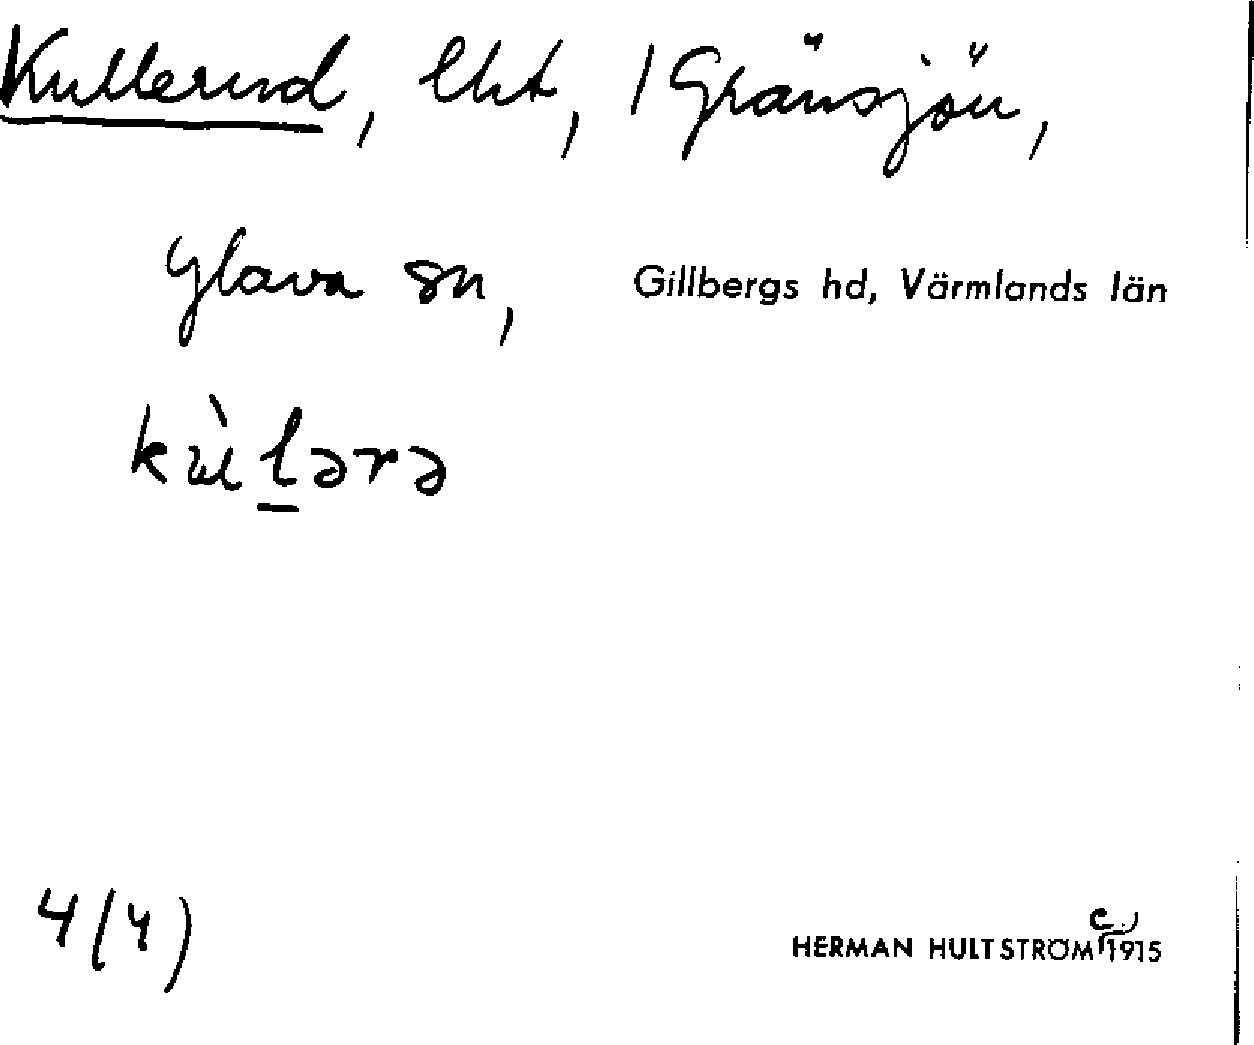 Kullerud, lht, / Gränsjön,
Glava sn, Gillbergs hd, Värmlands län
4(4)
HERMAN HULTSTRÖM c. 1915